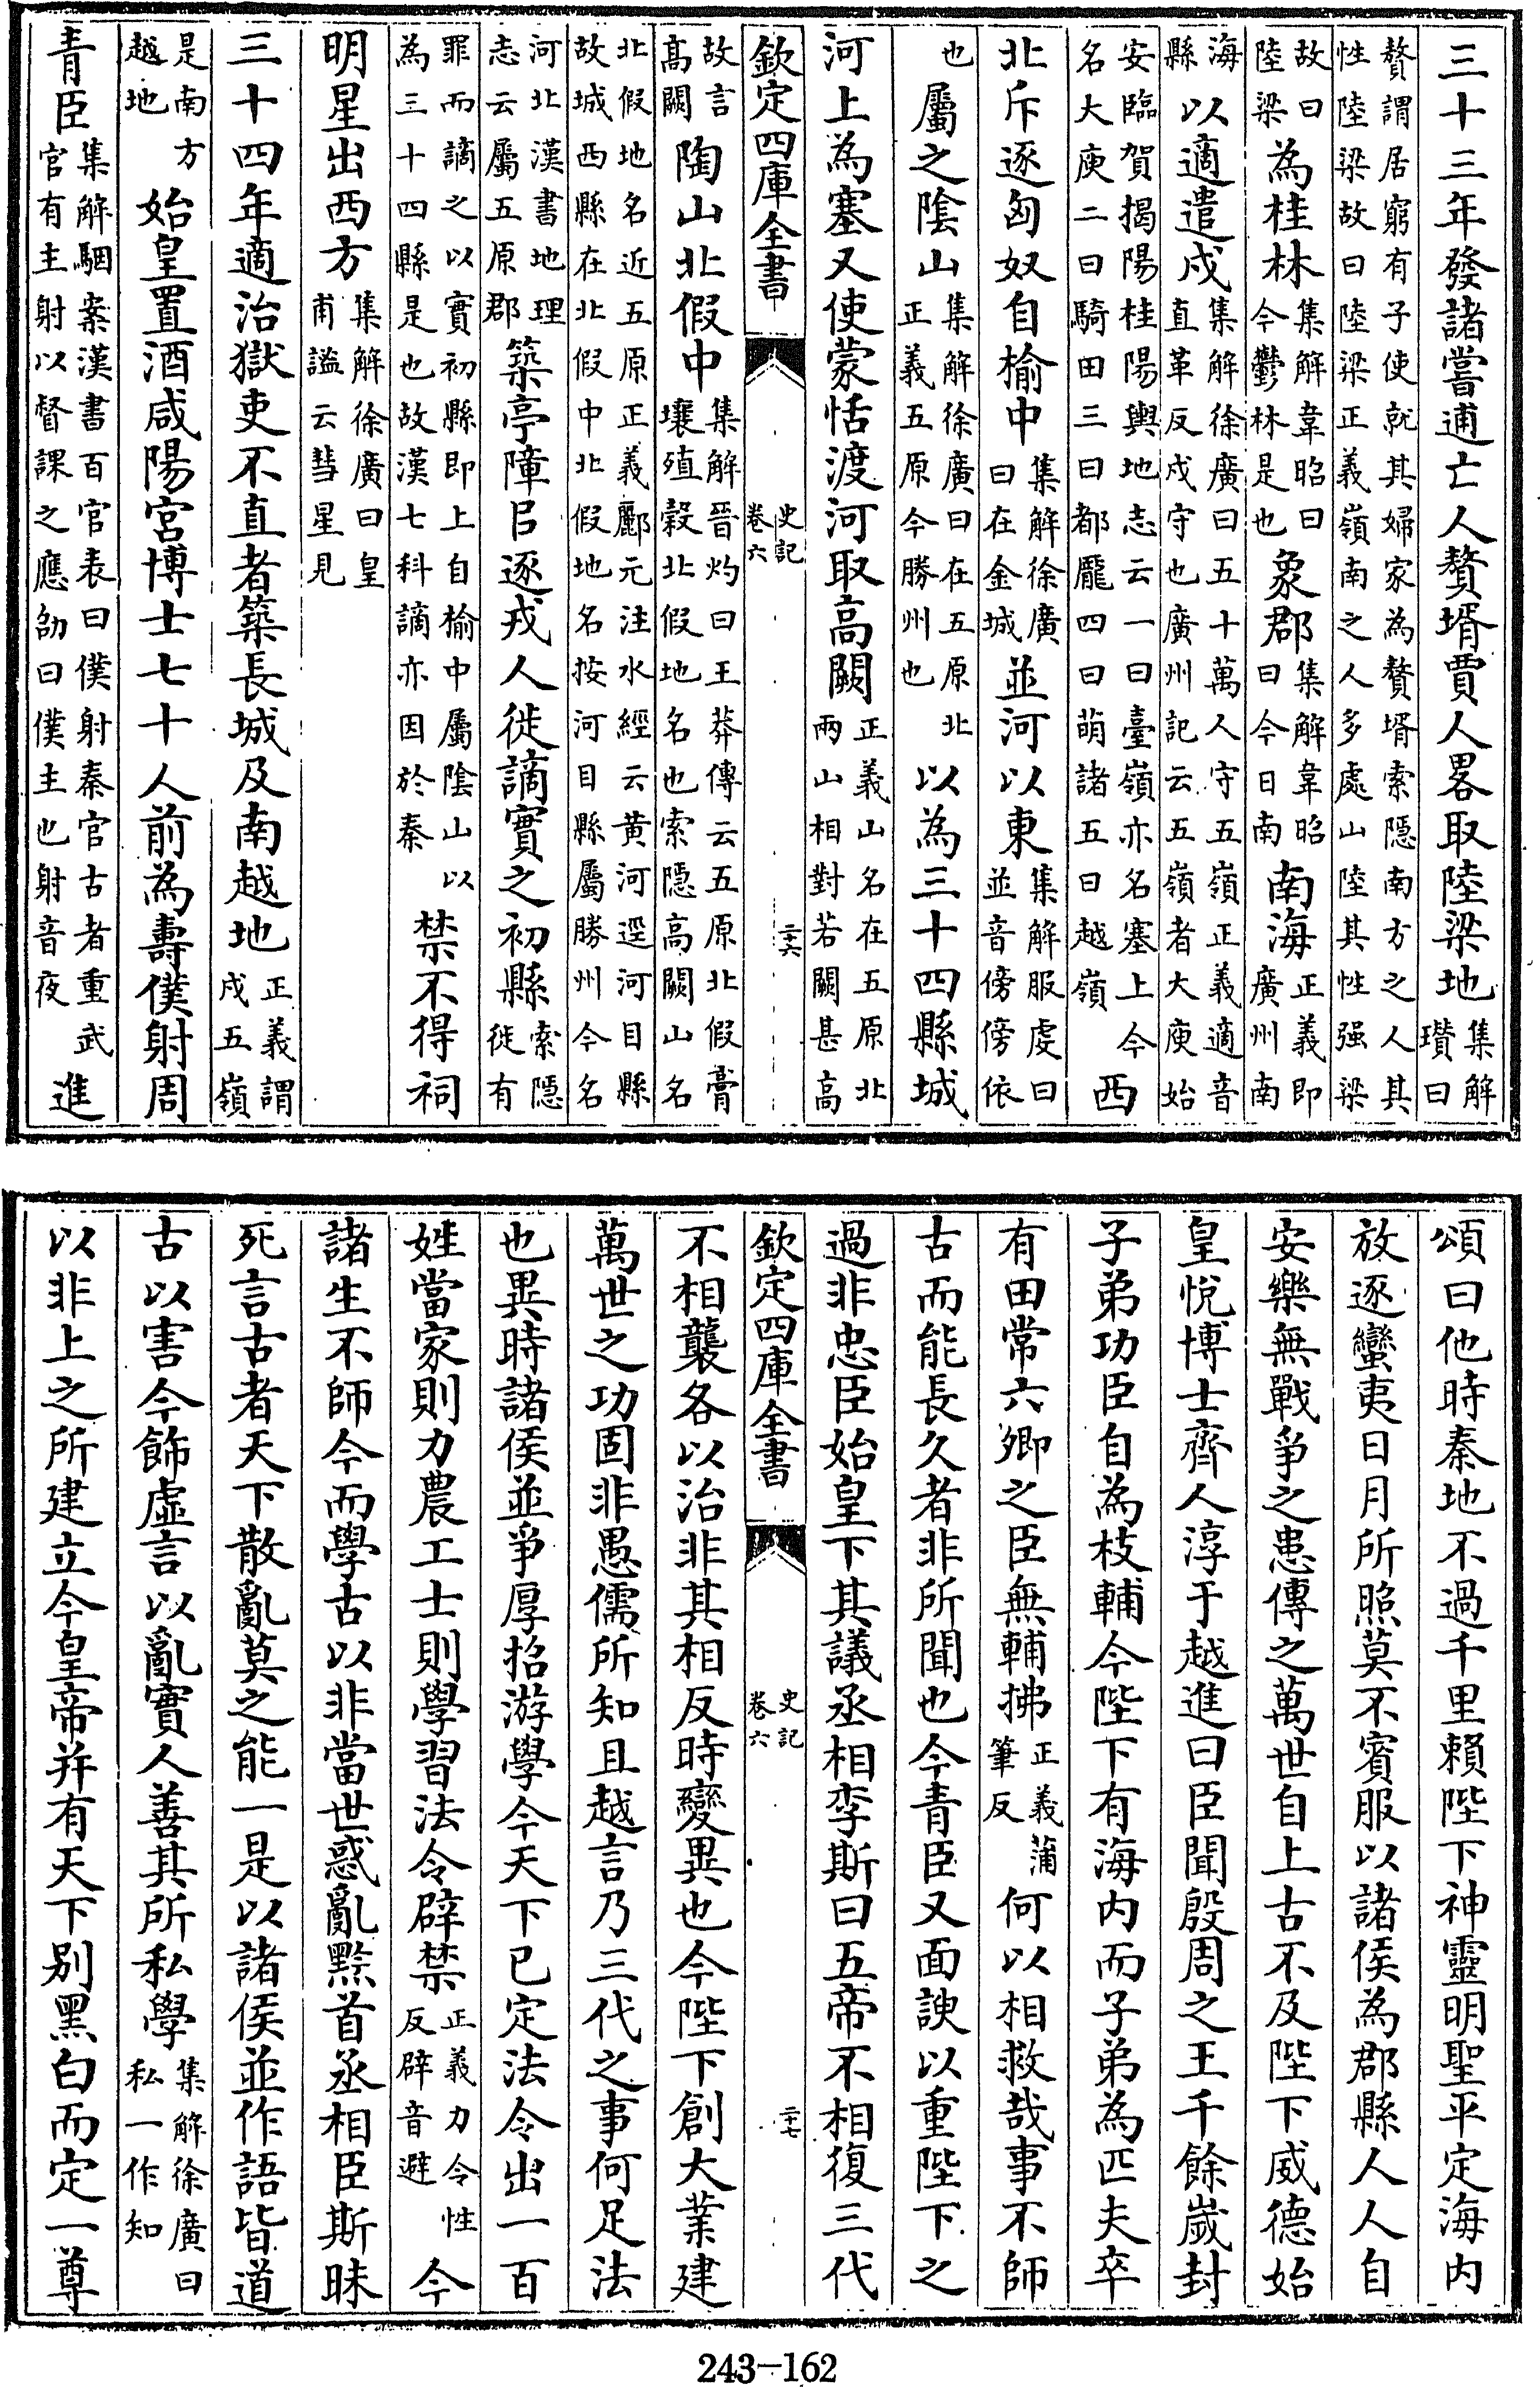 三十三年發諸嘗逋亡人贅壻賈人畧取陸梁地集解瓚曰
贅謂居窮有子使就其婦家為贅壻索隱南方之人其性陸梁故曰陸梁正義嶺南之人多處山陸其性强梁
故曰陸梁為桂林集解韋昭曰今鬱林是也象郡集解韋昭曰今日南南海正義即廣州南
海縣以適遣戍集解徐廣曰五十萬人守五嶺正義適音直革反戍守也廣州記云五嶺者大庾始
安臨賀揭陽桂陽輿地志云一曰臺嶺亦名塞上今名大庾二曰騎田三曰都龎四曰萌諸五曰越嶺西
北斥逐匈奴自榆中集解徐廣曰在金城並河以東集解服虔曰並音傍傍依
也屬之陰山集解徐廣曰在五原北正義五原今勝州也以為三十四縣城
河上為塞又使蒙恬渡河取高闕正義山名在五原北兩山相對若闕甚高
欽定四庫全書 史記卷六 二十六
故言高闕陶山北假中集解晉灼曰王莽傳云五原北假膏壤殖穀北假地名也索隱高闕山名
北假地名近五原正義酈元注水經云黄河逕河目縣故城西縣在北假中北假地名按河目縣屬勝州今名
河北漢書地理志云屬五原郡築亭障㠯逐戎人徙謫實之初縣索隱徙有
罪而謫之以實初縣即上自榆中屬陰山以為三十四縣是也故漢七科謫亦因於秦禁不得祠
明星出西方集解徐廣曰皇甫謐云彗星見
三十四年適治獄吏不直者築長城及南越地正義謂戍五嶺
是南方越地始皇置酒咸陽宮博士七十人前為壽僕射周
青臣集解駰案漢書百官表曰僕射秦官古者重武官有主射以督課之應劭曰僕主也射音夜進
頌曰他時秦地不過千里賴陛下神靈明聖平定海内
放逐蠻夷日月所照莫不賓服以諸侯為郡縣人人自
安樂無戰爭之患傳之萬世自上古不及陛下威德始
皇悅博士齊人淳于越進曰臣聞殷周之王千餘歲封
子弟功臣自為枝輔今陛下有海内而子弟為匹夫卒
有田常六卿之臣無輔拂正義蒲筆反何以相救哉事不師
古而能長久者非所聞也今青臣又面諛以重陛下之
過非忠臣始皇下其議丞相李斯曰五帝不相復三代
欽定四庫全書 史記卷六 二十七
不相襲各以治非其相反時變異也今陛下創大業建
萬世之功固非愚儒所知且越言乃三代之事何足法
也異時諸侯並爭厚招游學今天下已定法令出一百
姓當家則力農工士則學習法令辟禁正義力令性反辟音避今
諸生不師今而學古以非當世惑亂黔首丞相臣斯昧
死言古者天下散亂莫之能一是以諸侯並作語皆道
古以害今飾虛言以亂實人善其所私學集解徐廣曰私一作知
以非上之所建立今皇帝并有天下别黑白而定一尊
243-162